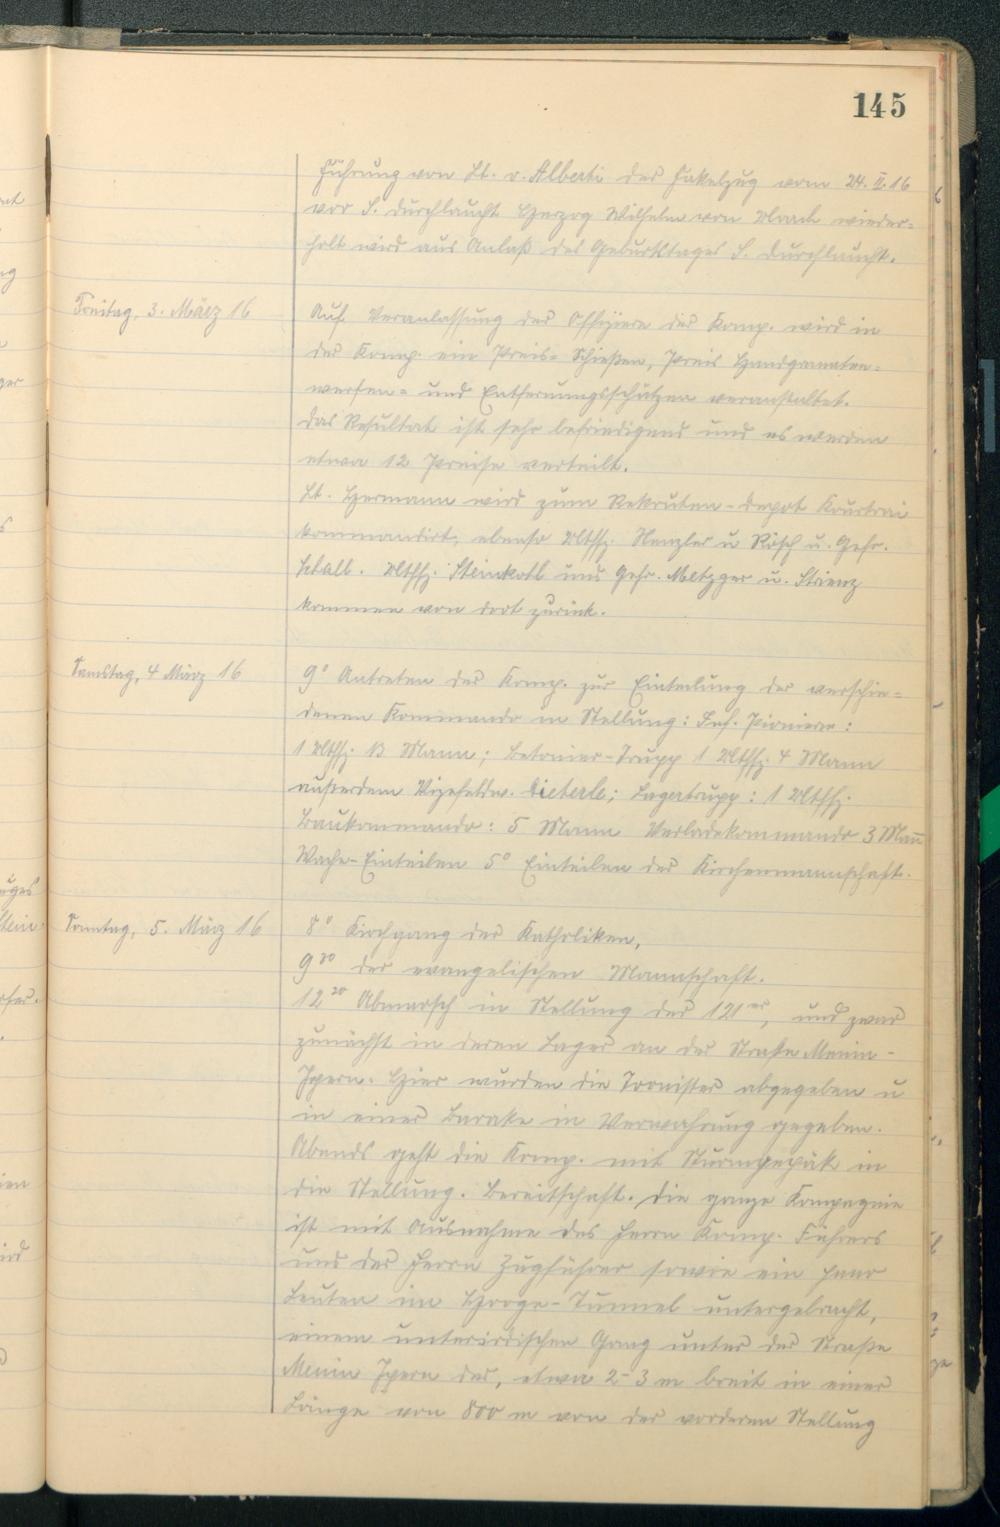 145
Führung von Lt. v. Alberti der Fakelzug vom 24. II. 16
vor S. Durchlaucht Herzog Wilhelm von Urach wieder-
holt wird aus Anlaß des Geburtstages S. Durchlaucht.
Freitag, 3. März 16
Auf Veranlassung der Offiziere der Komp. wird in
der Komp. ein Preis-Schießen, Preis Handgranaten-
werfen- und Entfernungsschätzen veranstaltet.
Das Resultat ist sehr befriedigend und es werden
etwa 12 Preise verteilt.
Lt. Hermann wird zum Rekruten-Depot Kourtrai
kommandirt, ebenso Utffz. Menzler u Rösch u. Gefr.
Schall. Utffz. Steinkohl und Gefr. Metzger u. Strienz
kommen von dort zurück.
Samstag, 4 März 16
9° Antreten der Komp. zur Einteilung der verschie-
denen Kommando in Stellung: Inf. Pioniere:
1 Utffz. 13 Mann; Betonier-Trupp 1 Utffz. 4 Mann
außerdem Vizefeldw. Dieterle; Lagertrupp: 1 Utffz.
Baukommando: 5 Mann Verladekommando 3 Mann
Wache-Einteilen 5° Einteilen der Kirchenmannschaft.
Sonntag, 5. März 16
8° Kirchgang der Katholiken,
9³⁰ der evangelischen Mannschaft.
12²⁰ Abmarsch in Stellung der 121er, und zwar
zunächst in deren Lager an der Straße Menin-
Ypern. Hier wurden die Tornister abgegeben u
in einer Barake in Verwahrung gegeben.
Abends geht die Komp. mit Sturmgepäk in
die Stellung. Bereitschaft. Die ganze Kompagnie
ist mit Ausnahme des Herrn Komp. Führers
und der Herrn Zugführer sowie ein paar
Leuten im Hooge-Tunnel untergebracht,
einem unterirdischen Gang unter der Straße
Menin Ypern der, etwa 2-3 m breit in einer
Länge von 800 m von der vorderen Stellung